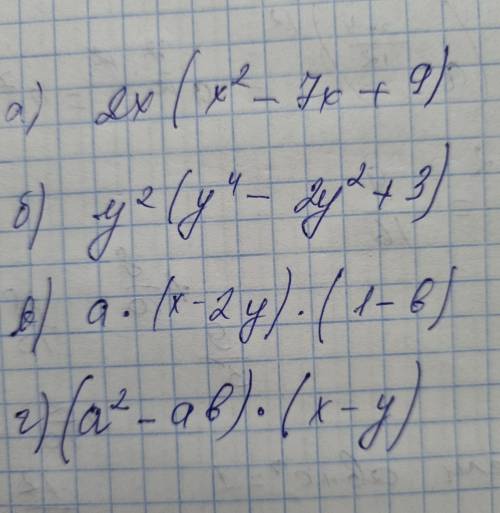 а) 2x (x² - 7x + 9)
б) y² (y⁴ - 2y² + 3)
в) a · (x - 2y) · (1 - b)
г) (a² - ab) · (x - y)